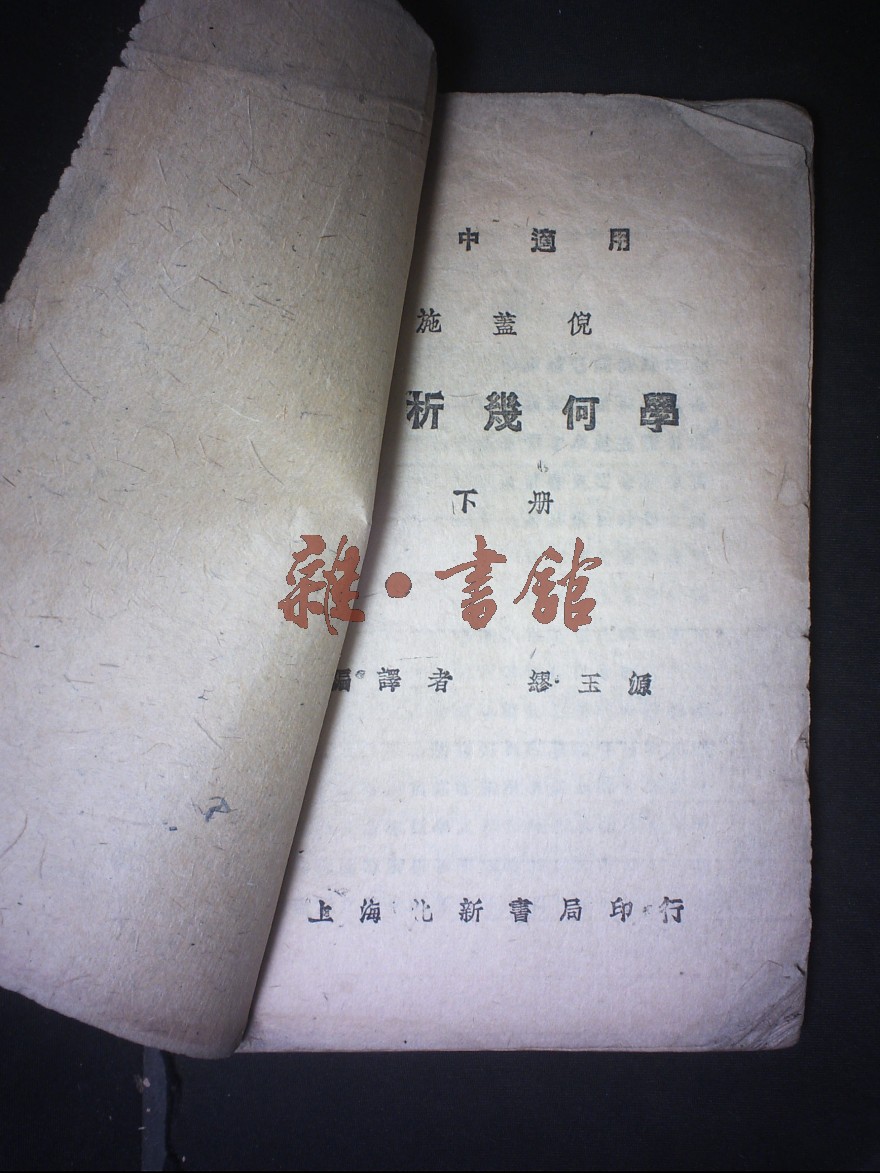 中適用
施蓋倪
析幾何學
下册
雜·書館
編譯者 繆玉源
上海北新書局印行